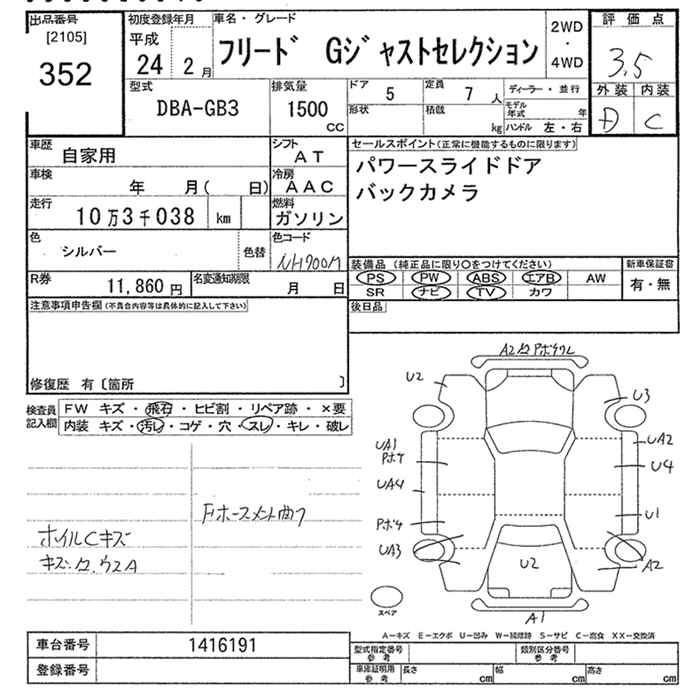 出品番号
[2105]
352
初度登録年月
平成
24 2月
車名・グレード
フリード Gジャストセレクション
2WD
・
4WD
評価点
3.5
外装 内装
D C
型式
DBA-GB3
排気量
1500
CC
ドア 5
定員 7 人
形状
積載 kg
ディーラー・並行
モデル年式 年
ハンドル 左・右
車歴 自家用
シフト AT
車検 年 月( 日)
冷房 AAC
走行 10万3千038 km
燃料 ガソリン
色 シルバー
色替
色コード NH700M
R券 11,860 円
名変通知期限 月 日
セールスポイント(正常に機能するものに限ります)
パワースライドドア
バックカメラ
装備品(純正品に限り〇をつけてください)
新車保証書
PS PW ABS エアB AW
有・無
SR ナビ TV カワ
後日品
注意事項申告欄(不具合内容等は具体的に記入して下さい)
修復歴 有〔箇所 〕
検査員記入欄
FW キズ・飛石・ヒビ割・リペア跡・×要
内装 キズ・汚レ・コゲ・穴・スレ・キレ・破レ
ホイルCキズ
Fホースメント曲り
U2
U3
UA1
UA2
U4
UA4
U1
UA3
A2
U2
A1
スペア
A−キズ E−エクボ U−凹み W−補修跡 S−サビ C−腐食 XX−交換済
車台番号 1416191
登録番号
型式指定番号 参考
類別区分番号 参考
車庫証明用 参考
長さ cm
幅 cm
高さ cm